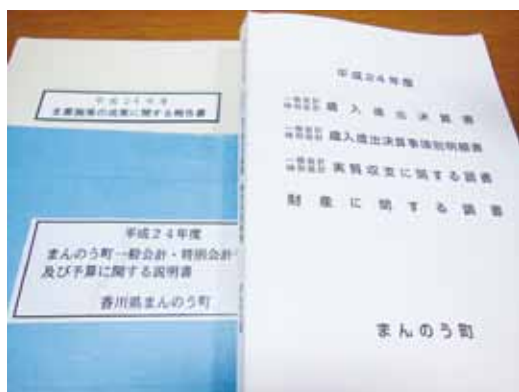 平成24年度
主要施策の成果に関する報告書
平成24年度
まんのう町一般会計・特別会計
及び予算に関する説明書
香川県まんのう町
平成24年度
一般会計
特別会計 歳入歳出決算書
一般会計
特別会計 歳入歳出決算事項別明細書
一般会計
特別会計 実質収支に関する調書
財産に関する調書
まんのう町